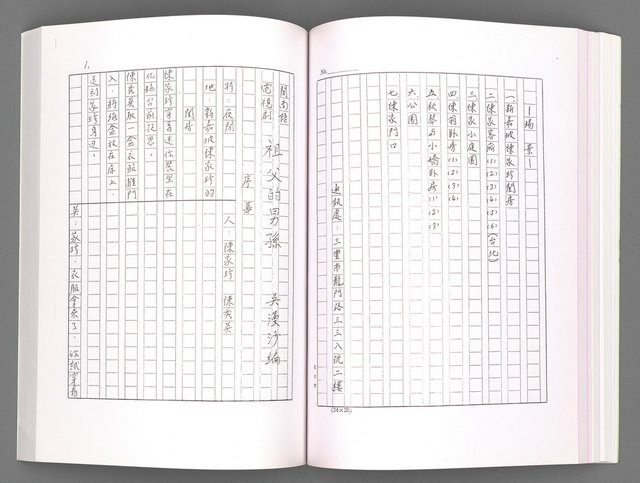 No.
—場 景—
一 新嘉坡陳家珍閨房
二 陳家客廳(1)(2)(3)(4)(5)(6)(台北)
三 陳家小庭園
四 陳羽卧房(1)(2)(3)(4)
五 秋琴与小嬌卧房(1)(2)(3)
六 公園
七 陳家門口
通訊處：三重市龍門路三三八號二樓
(24×25)
1.
閩南語
電視劇 祖父的男孫 吳漫沙編
序 幕
時：夜間 人：陳家珍 陳秀英
地：新嘉坡陳家珍的
閨房
陳家珍穿身迷你裝坐在
化粧台前沉思。
陳秀英取一盒衣服推門
入，將紙盒放在床上，
走到家珍身边。
英：家珍，衣服拿來了，